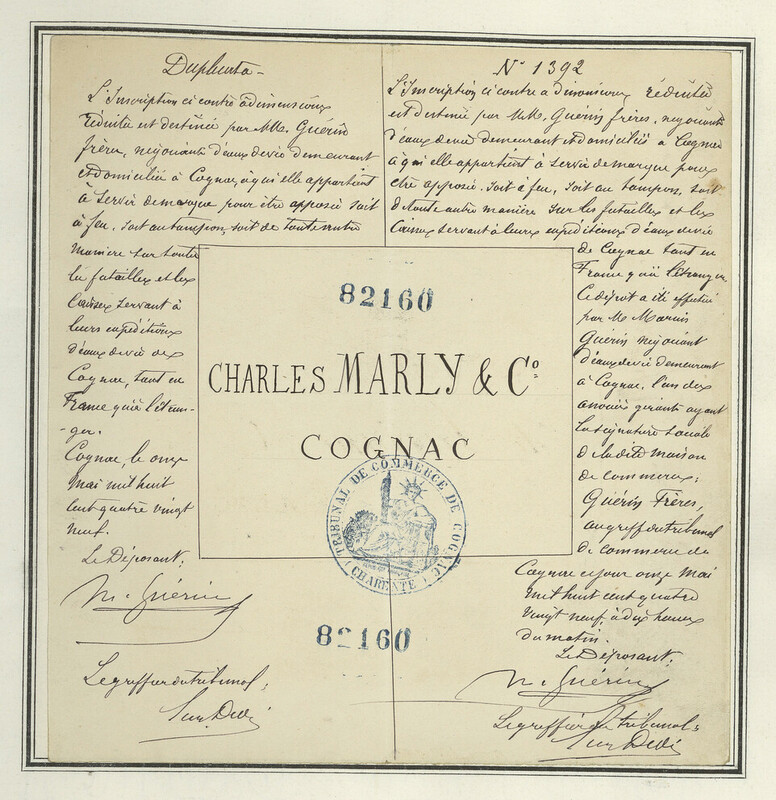 Duplicata
L'Inscription ci contre à dimensions
réduite est destinée par MM. Guérin
frères, négociants d'eaux de vie demeurant
et domiciliés à Cognac, à qui elle appartient
à servir de marque pour être apposée soit
à feu, soit au tampon, soit de toute autre
manière sur toutes
les futailles et les
caisses servant à
leurs expéditions
d'eaux de vie de
Cognac, tant en
France qu'à l'étran-
-ger.
Cognac, le onze
Mai mil huit
cent quatre vingt
neuf.
Le Déposant,
M. Guérin
Le greffier du tribunal,
N° 1392
L'Inscription ci contre à dimensions réduite
est destinée par MM. Guérin frères, négociants
d'eaux de vie demeurant et domiciliés à Cognac
à qui elle appartient à servir de marque pour
être apposée soit à feu, soit au tampon, soit
de toute autre manière sur les futailles et les
Caisses servant à leurs expéditions d'eaux de vie
de Cognac tant en
France qu'à l'étranger
Ce dépôt a été effectué
par Me
Guérin négociant
d'eaux de vie demeurant
à Cognac, l'un des
associés gérants ayant
la signature sociale
de la dite maison
de commerce,
Guérin Frères,
au greffe du tribunal
de commerce de
Cognac ce jour onze Mai
mil huit cent quatre
vingt neuf, à dix heures
du matin.
Le Déposant,
M. Guérin
Le greffier du tribunal,
82160
CHARLES MARLY & Co.
COGNAC
TRIBUNAL DE COMMERCE DE COGNAC
(CHARENTE)
82160